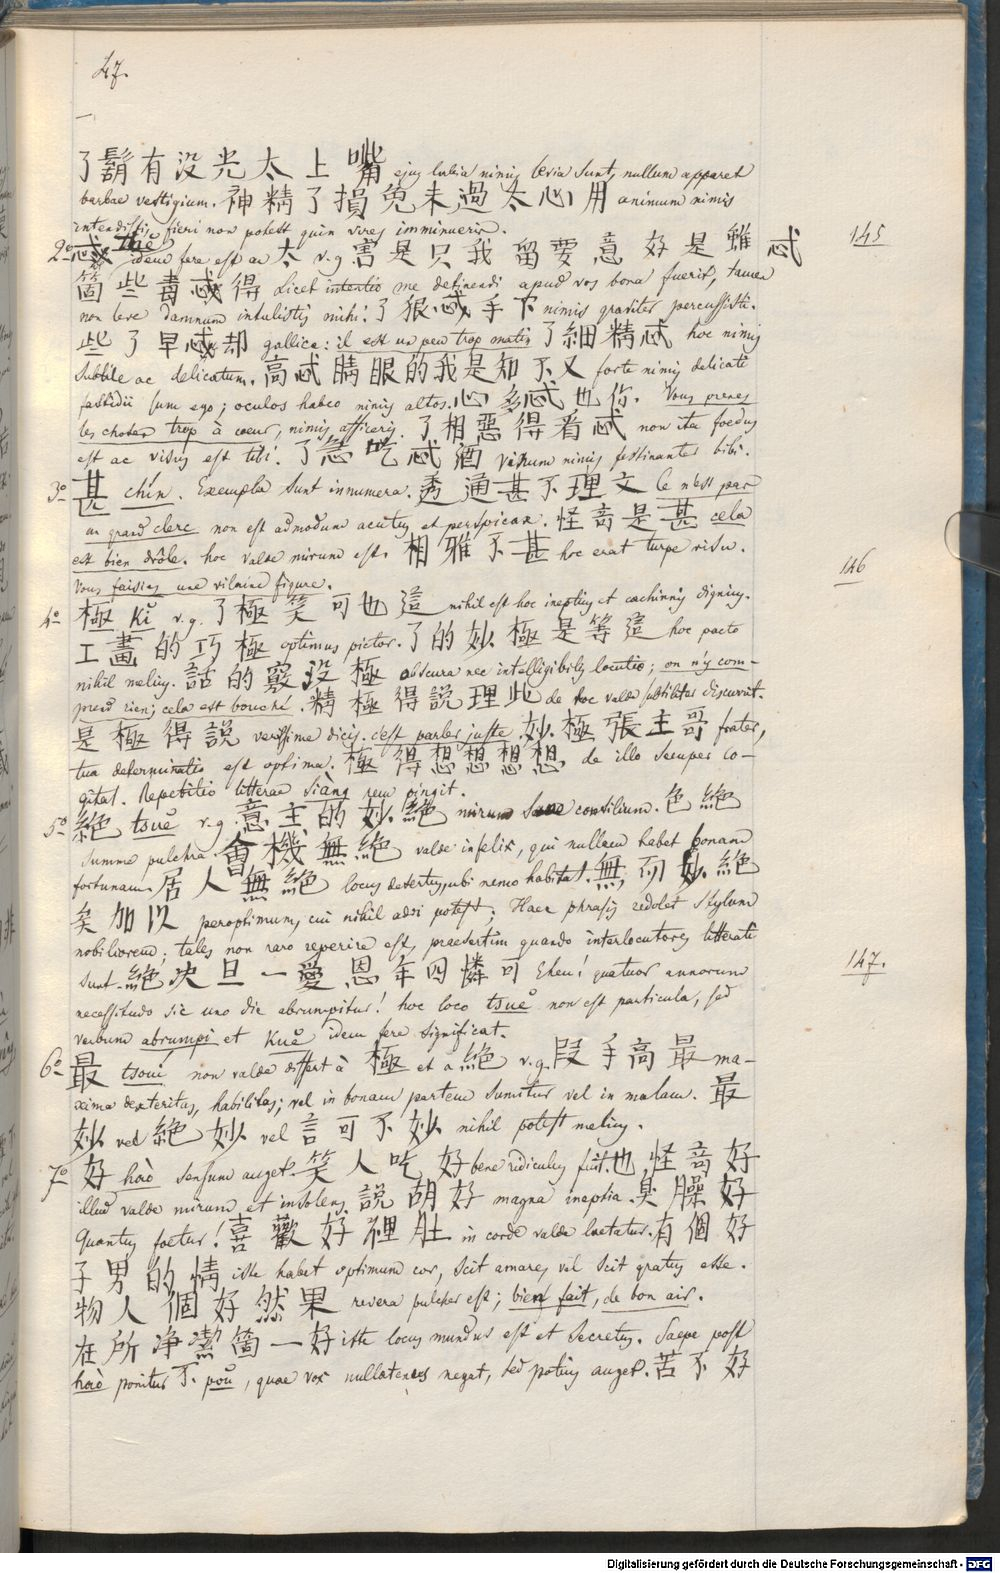 47.
了鬍有沒光太上嘴 ejus labia nimis levia sunt, nullum apparet
barbae vestigium. 神精了損免未過太心用 animum nimis
intendistis, fieri non potest quin vires imminueris.
145
2º忒 thě idem fere est ac 太 v.g 害是只我留要意好是雖忒
箇些毒忒得 Licet intentio me detinendi apud vos bona fuerit, tamen
non leve damnum intulistis mihi! 了狠忒手下 nimis graviter percussisti.
些了早忒却 gallice: il est un peu trop matin 了細精忒 hoc nimis
subtile ac delicatum. 高忒睛眼的我是知不又 forte nimis delicati
fastidii sum ego; oculos habeo nimis altos. 心多忒也你. Vous prenes
les choses trop à coeur, nimis afficeris. 了相惡得看忒 non ita foedus
est ac visus est tibi. 了急吃忒酒 vinum nimis festinanter bibi.
3º 甚 chín. Exempla sunt innumera. 透通甚不理文 Ce n'est pas
un grand clerc non est admodum acutus et perspicax. 怪奇是甚 cela
est bien drôle. hoc valde mirum est. 相雅不甚 hoc erat turpe visu.
146
Vous faisiez une vilaine figure.
4º 極 Kǐ v.g. 了極笑可也這 nihil est hoc ineptius et cachinnis dignius.
工畫的巧極 optimus pictor. 了的妙極是等這 hoc pacto
nihil melius. 話的竅沒極 obscura nec intelligibilis locutio; on n'y com-
prend rien; cela est bouché. 精極得說理此 de hoc valde subtiliter disseruit.
是極得說 verissime dicis. c'est parler juste. 妙極張主哥 frater,
tua determinatio est optima. 極得想想想想, de illo semper co-
gitat. Repetitio litterae siàng rem pingit.
5º 絕 tsuě v.g. 意主的妙絕 mirum sane consilium. 色絕
summe pulchra. 會機無絕 valde infelix, qui nullam habet bonam
fortunam. 居人無絕 locus desertus, ubi nemo habitat. 無, 可妙絕
矣加以 peroptimum, cui nihil addi potest; Haec phrasis redolet stylum
nobiliorem; tales non raro reperire est, praesertim quando interlocutores litterati
147.
sunt. 絕决旦一愛恩年四憐可 Eheu! quatuor annorum
necessitudo sic uno die abrumpitur! hoc loco tsuě non est particula, sed
verbum abrumpi et Kuě idem fere significat.
6º 最 tsoúi non valde differt à 極 et a 絕 v.g 段手高最 ma-
xima dexteritas, habilitas; vel in bonam partem sumitur vel in malam. 最
妙 vel 絕妙 vel 言可不妙 nihil potest melius.
7º 好 haò sensum auget. 笑人吃好 bene ridiculus fuit. 也怪奇好
illud valde mirum et insolens. 說胡好 magna ineptia. 臭臊好
Quantus foetus! 喜歡好裡肚 in corde valde laetatur. 有個好
子男的情 iste habet optimum cor, scit amare, vel scit gratus esse.
物人個好然果 revera pulcher est; bien fait, de bon air.
在所净潔箇一好 iste locus mundus est et secretus. Saepe post
haò ponitur 不 poŭ, quae vox nullatenus negat, sed potius auget. 苦不好
Digitalisierung gefördert durch die Deutsche Forschungsgemeinschaft - DFG